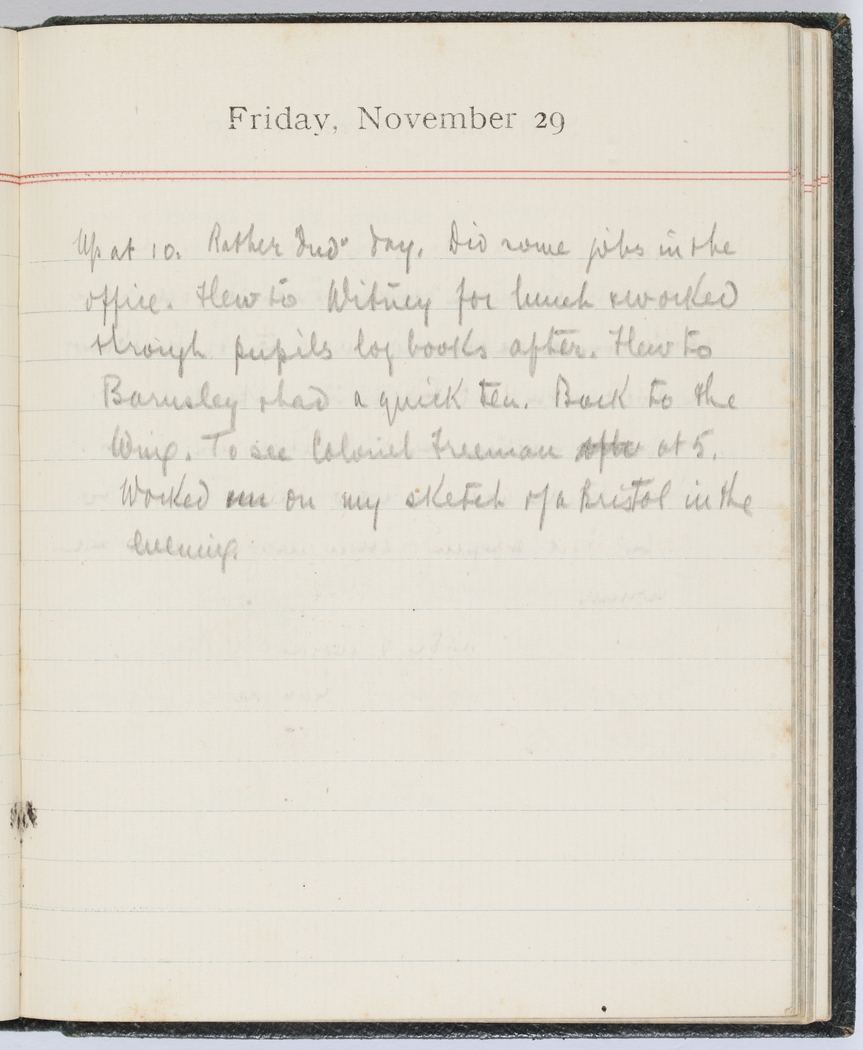 Friday, November 29
Up at 10. Rather "dud" day. Did some jobs in the
office. Flew to Witney for lunch & worked
through pupils log books after. Flew to
Barnsley & had a quick tea. Back to the
Wing. To see Colonel Freeman at 5.
Worked on my sketch of a Bristol in the
evening.